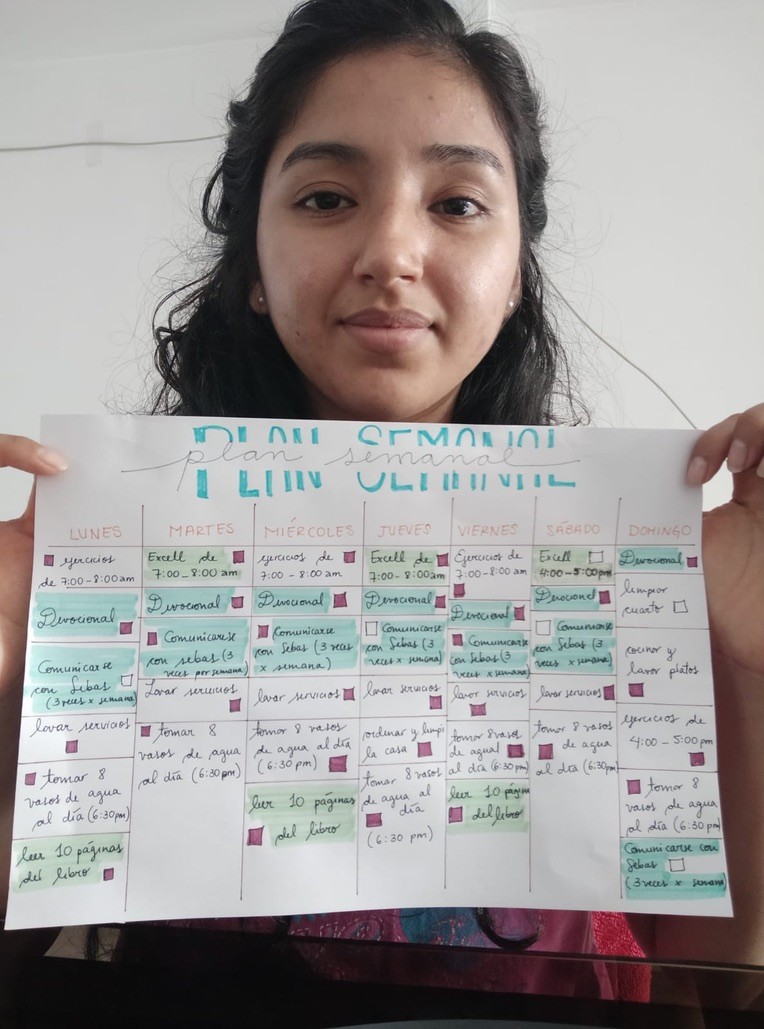 PLAN SEMANAL
plan semanal
LUNES
ejercicios
de 7:00-8:00am
Devocional
Comunicarse
con Sebas
(3 veces x semana)
lavar servicios
tomar 8
vasos de agua
al día (6:30pm)
leer 10 páginas
del libro
MARTES
Excell de
7:00-8:00 am
Devocional
Comunicarse
con sebas (3
veces por semana)
Lavar servicios
tomar 8
vasos de agua
al día (6:30pm)
MIÉRCOLES
ejercicios de
7:00-8:00 am
Devocional
Comunicarse
con Sebas (3 veces
x semana)
lavar servicios
tomar 8 vasos
de agua al día
(6:30 pm)
leer 10 páginas
del libro
JUEVES
Excell de
7:00-8:00am
Devocional
Comunicarse
con Sebas (3
veces x semana)
lavar servicios
ordenar y limpi
la casa
tomar 8 vasos
de agua al
día
(6:30 pm)
VIERNES
Ejercicios de
7:00-8:00am
Devocional
Comunicarse
con Sebas (3
veces x semana)
lavar servicios
tomar 8 vasos
de agua
al día (6:30pm)
leer 10 páginas
del libro
SÁBADO
Excell
4:00-5:00pm
Devocional
Comunicarse
con Sebas (3
veces x semana)
lavar servicios
tomar 8 vasos
de agua
al día (6:30pm)
DOMINGO
Devocional
limpiar
cuarto
cocinar y
lavar platos
ejercicios de
4:00-5:00pm
tomar 8
vasos de agua
al día (6:30pm)
Comunicarse con
Sebas
(3 veces x semana)